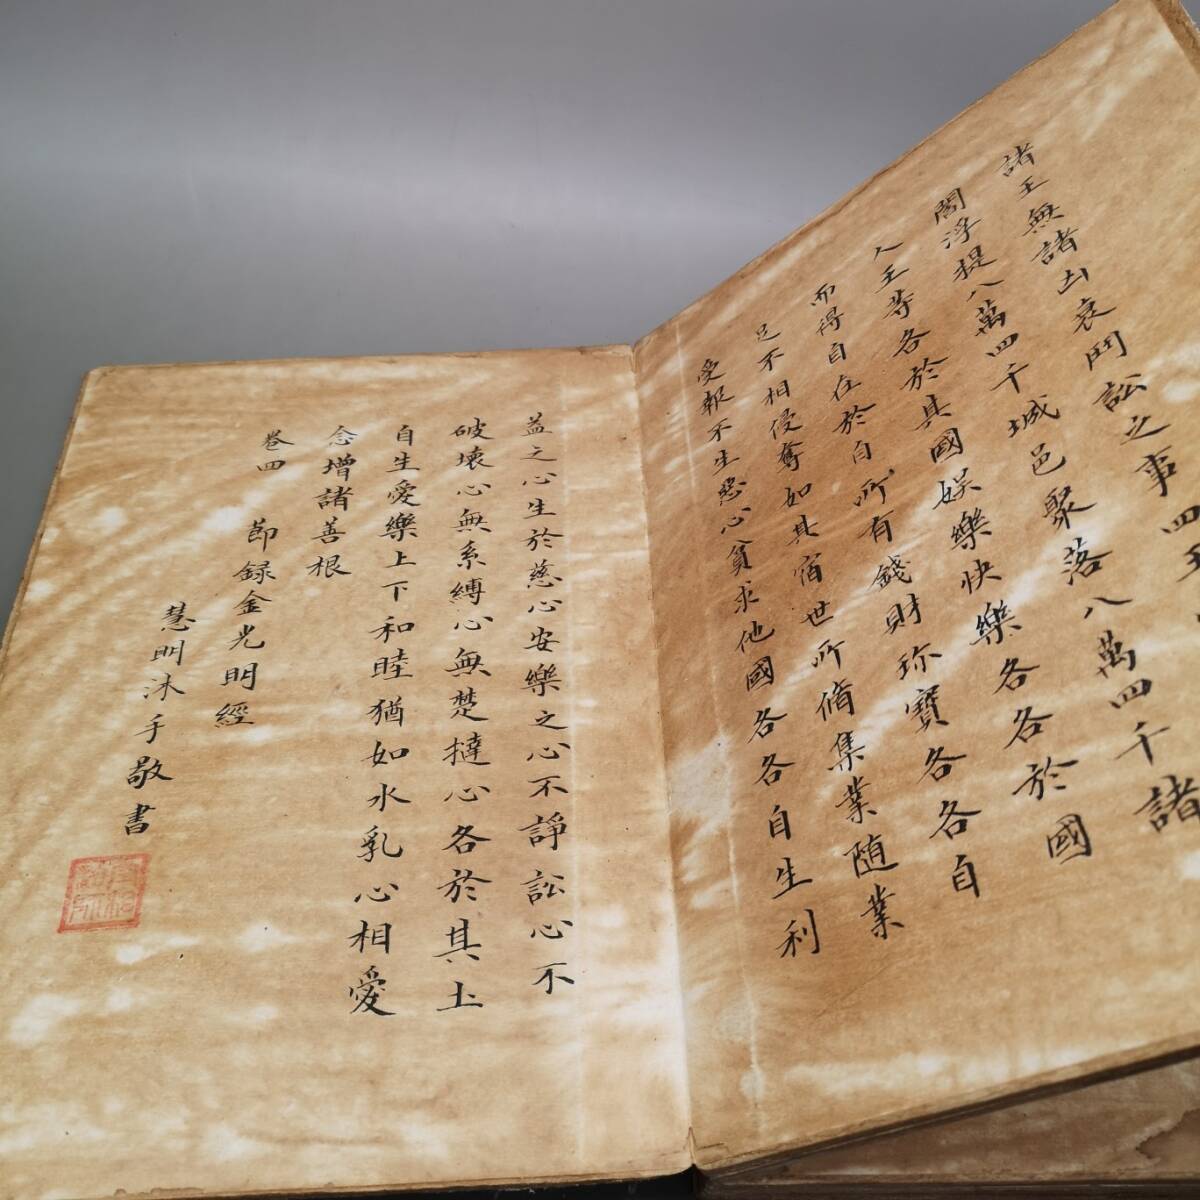 諸王無諸凶衰鬥訟之事四
閻浮提八萬四千城邑聚落八萬四千諸
人王等各於其國娛樂快樂各各於國
而得自在於自所有錢財珎寶各各自
足不相侵奪如其宿世所脩集業随業
受報不生惡心貧求他國各各自生利
益之心生於慈心安樂之心不諍訟心不
破壊心無系縛心無楚撻心各於其土
自生愛樂上下和睦猶如水乳心相愛
念增諸善根
卷四 莭録金光明經
慧明沐手敬書